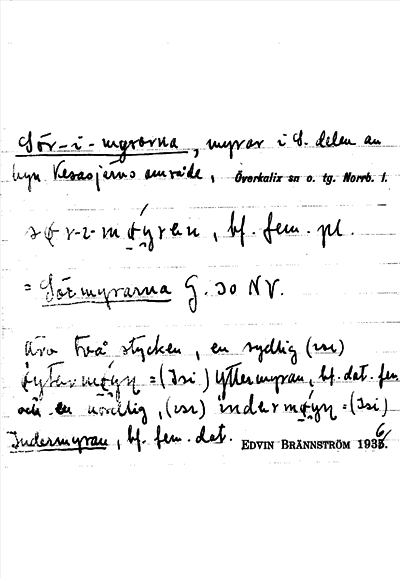 Sör-i-myrarna, myrar i S. delen av
byn Vesasjärvs område, Överkalix sn o. tg. Norrb. l.
sør-ɩ-mǿyrɐn, bf. fem. pl.
= Sörmyrarna G. 30 NV.
Äro två stycken, en sydlig (
mǿyn = (Isi) Yttermyran, bf. dat. fem
och en nordlig, indermǿyn = (Isi)
Indermyran, bf. fem. dat. EDVIN BRÄNNSTRÖM 1936.